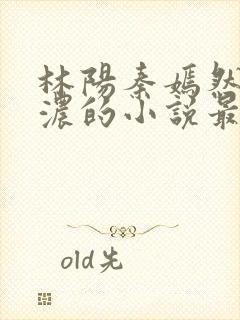 林陽秦嫣然
濃的小説最
old先